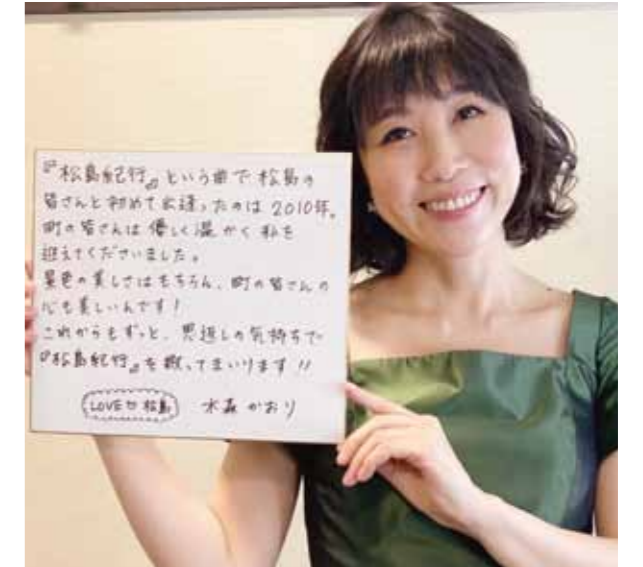 『松島紀行』という曲で松島の
皆さんと初めて出逢ったのは2010年。
町の皆さんは優しく温かく私を
迎えてくださいました。
景色の美しさはもちろん、町の皆さんの
心も美しいんです!
これからもずっと、恩返しの気持ちで
『松島紀行』を歌ってまいります!!
LOVE♡松島 水森かおり